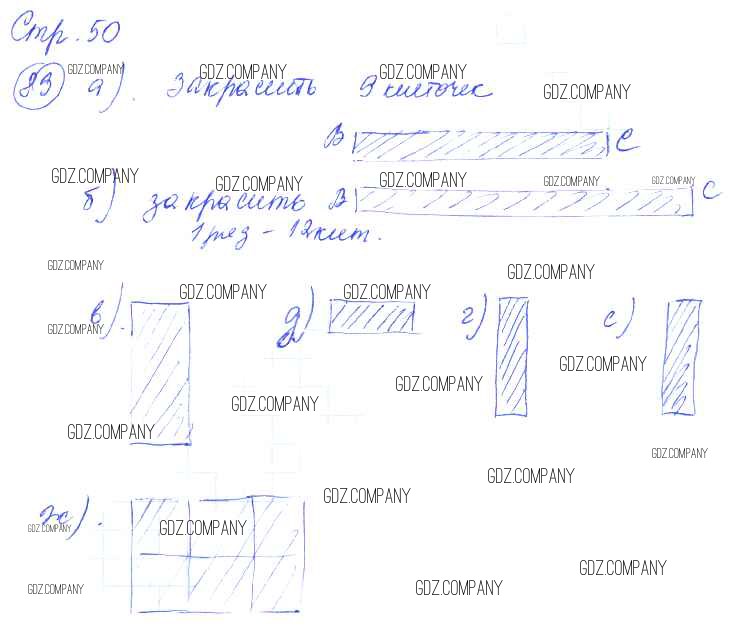 Стр. 50
GDZ.COMPANY GDZ.COMPANY GDZ.COMPANY
83 а). Закрасить 9 клеточек
GDZ.COMPANY
В С
GDZ.COMPANY GDZ.COMPANY GDZ.COMPANY GDZ.COMPANY GDZ.COMPANY
б) закрасить В С
12 клет.
GDZ.COMPANY GDZ.COMPANY
GDZ.COMPANY GDZ.COMPANY
в) д) г) е)
GDZ.COMPANY
GDZ.COMPANY GDZ.COMPANY
GDZ.COMPANY
GDZ.COMPANY GDZ.COMPANY
GDZ.COMPANY GDZ.COMPANY
ж).
GDZ.COMPANY GDZ.COMPANY
GDZ.COMPANY GDZ.COMPANY GDZ.COMPANY